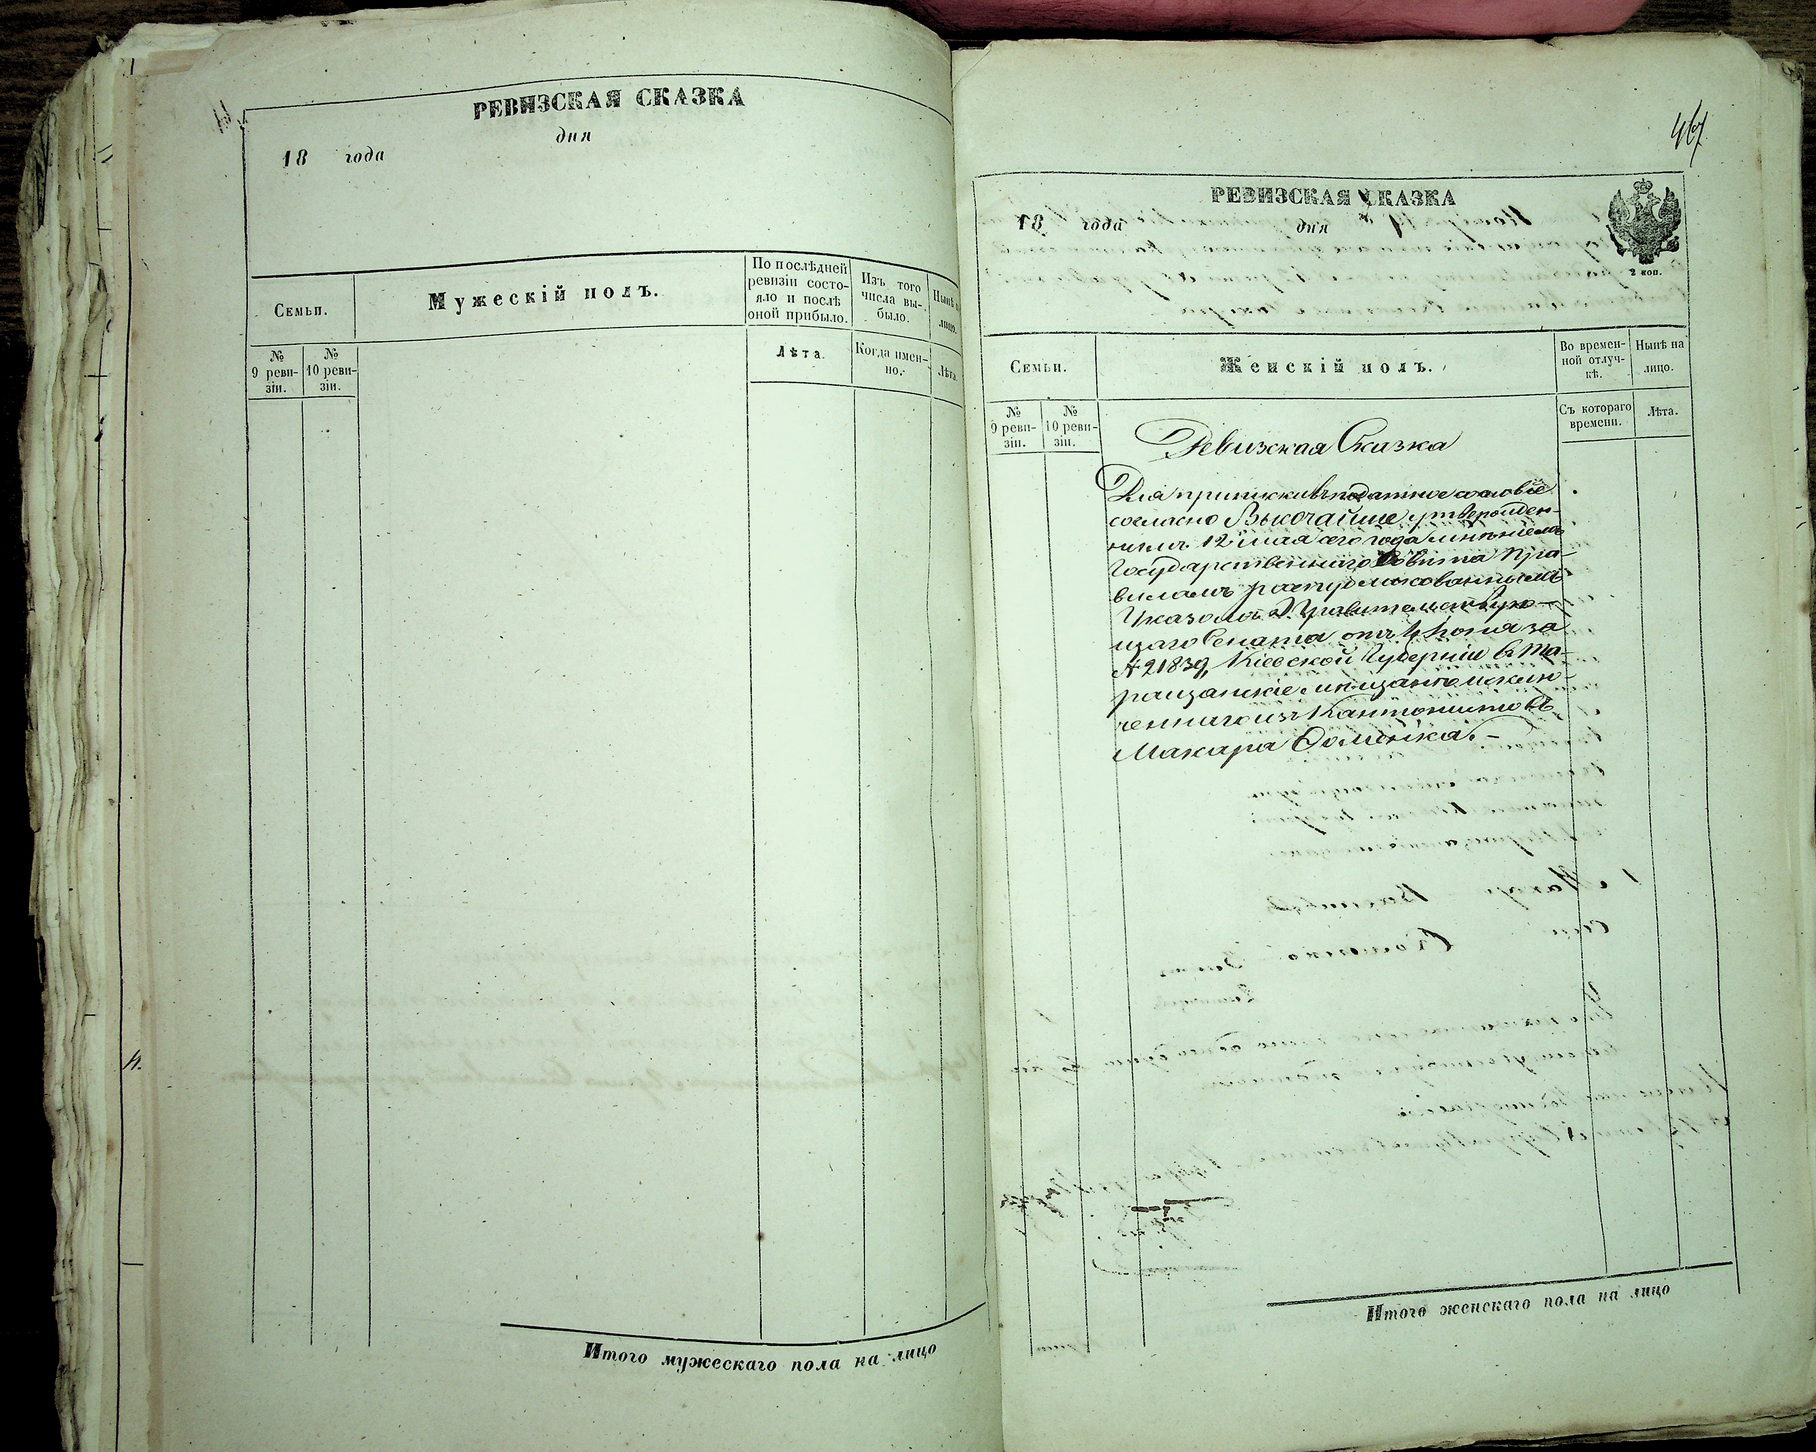 РЕВИЗСКАЯ СКАЗКА
18 года дня
Семьи.
Мужескій полъ.
По послѣдней
ревизіи состо-
яло и послѣ
оной прибыло.
Изъ того
числа вы-
было.
Нынѣ
лицо.
№
9 реви-
зіи.
№
10 реви-
зіи.
Лѣта.
Когда имен-
но.
Лѣта.
Итого мужескаго пола на лицо
4.
467
РЕВИЗСКАЯ СКАЗКА
18 года дня
2 коп.
Семьи.
Женскій полъ.
Во времен-
ной отлуч-
кѣ.
Нынѣ на
лицо.
№
9 реви-
зіи.
№
10 реви-
зіи.
Съ котораго
времени.
Лѣта.
Ревизкая Сказка
Для приписки въ податное сословіе
согласно Высочайше утвержден-
нымъ 12 мая сего года мнѣніемъ
Государственнаго Совѣта пра-
виламъ распубликованнымъ
Указомъ Правительствую-
щаго Сената отъ 4 Іюня за
№ 21839, Кіевской Губерніи въ Та-
ращанскіе мѣщане исклю-
ченнаго изъ Кантонистовъ
Макара
Итого женскаго пола на лицо